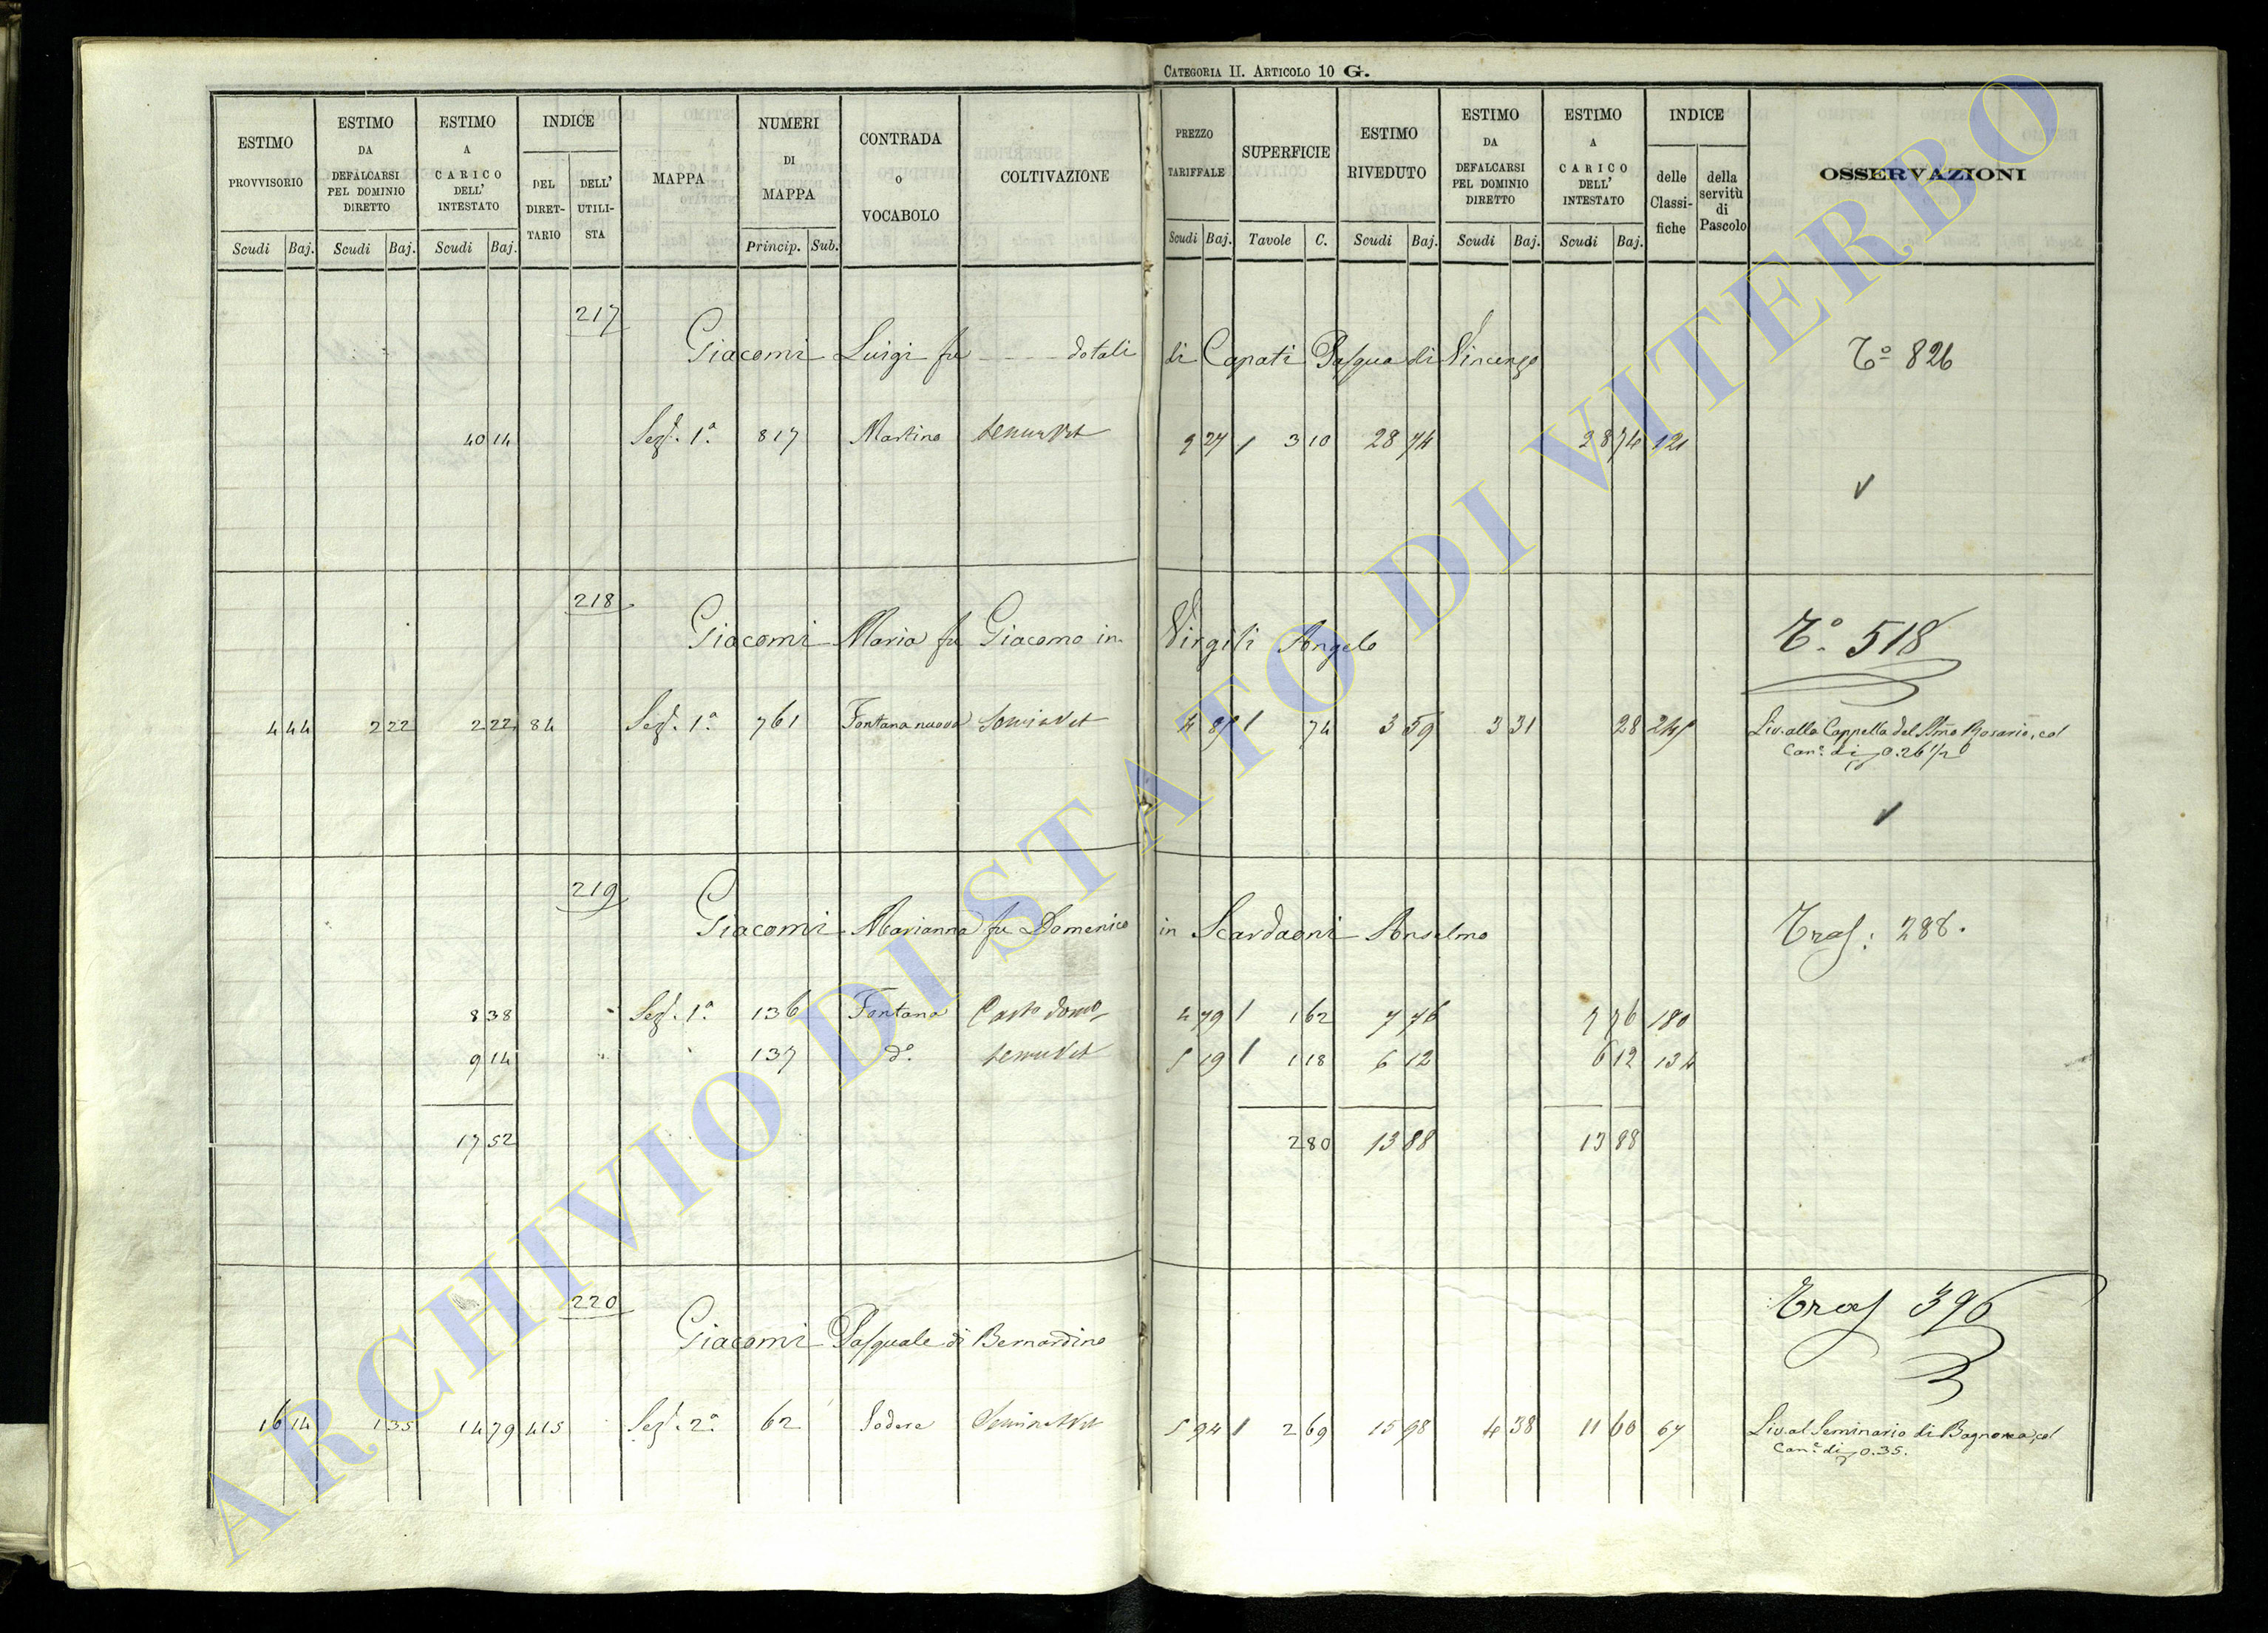 CATEGORIA II. ARTICOLO 10 G.
ESTIMO PROVVISORIO Scudi Baj.
ESTIMO DA DEFALCARSI PEL DOMINIO DIRETTO Scudi Baj.
ESTIMO A CARICO DELL' INTESTATO Scudi Baj.
INDICE DEL DIRET- TARIO DELL' UTILI- STA
MAPPA
NUMERI DI MAPPA Princip. Sub.
CONTRADA o VOCABOLO
COLTIVAZIONE
PREZZO TARIFFALE Scudi Baj.
SUPERFICIE Tavole C.
ESTIMO RIVEDUTO Scudi Baj.
ESTIMO DA DEFALCARSI PEL DOMINIO DIRETTO Scudi Baj.
ESTIMO A CARICO DELL' INTESTATO Scudi Baj.
INDICE delle Classi- fiche della servitù di Pascolo
OSSERVAZIONI
217
Giacomi Luigi fu - - - - dotali di Capati Pasqua di Vincenzo T.º 826
40 14 Sez. 1ª 817 Martino 9 27 1 3 10 28 74 28 74 121
218
Giacomi Maria fu Giacomo in Virgili Angelo T.º 518
4 44 2 22 2 22 84 Sez. 1ª 761 Fontana nuova 4 89 1 74 3 59 3 31 28 Liv. alla Cappella del Smo Rosario, col
Can.e di 0.26 1/2
219
Giacomi Marianna fu Domenico in Scardaoni Anselmo Tras: 288.
8 38 Sez. 1ª 136 Fontana 4 79 1 1 62 7 76 7 76 180
9 14 137 dº 5 19 1 1 18 6 12 6 12 134
17 52 2 80 13 88 13 88
220
Giacomi Pasquale di Bernardino Tras 396
16 14 1 35 14 79 415 Sez. 2ª 62 Sodera 5 94 1 2 69 15 98 4 38 11 60 67 Liv. al Seminario di Bagnorea, col
Can.e di 0.35.
ARCHIVIO DI STATO DI VITERBO